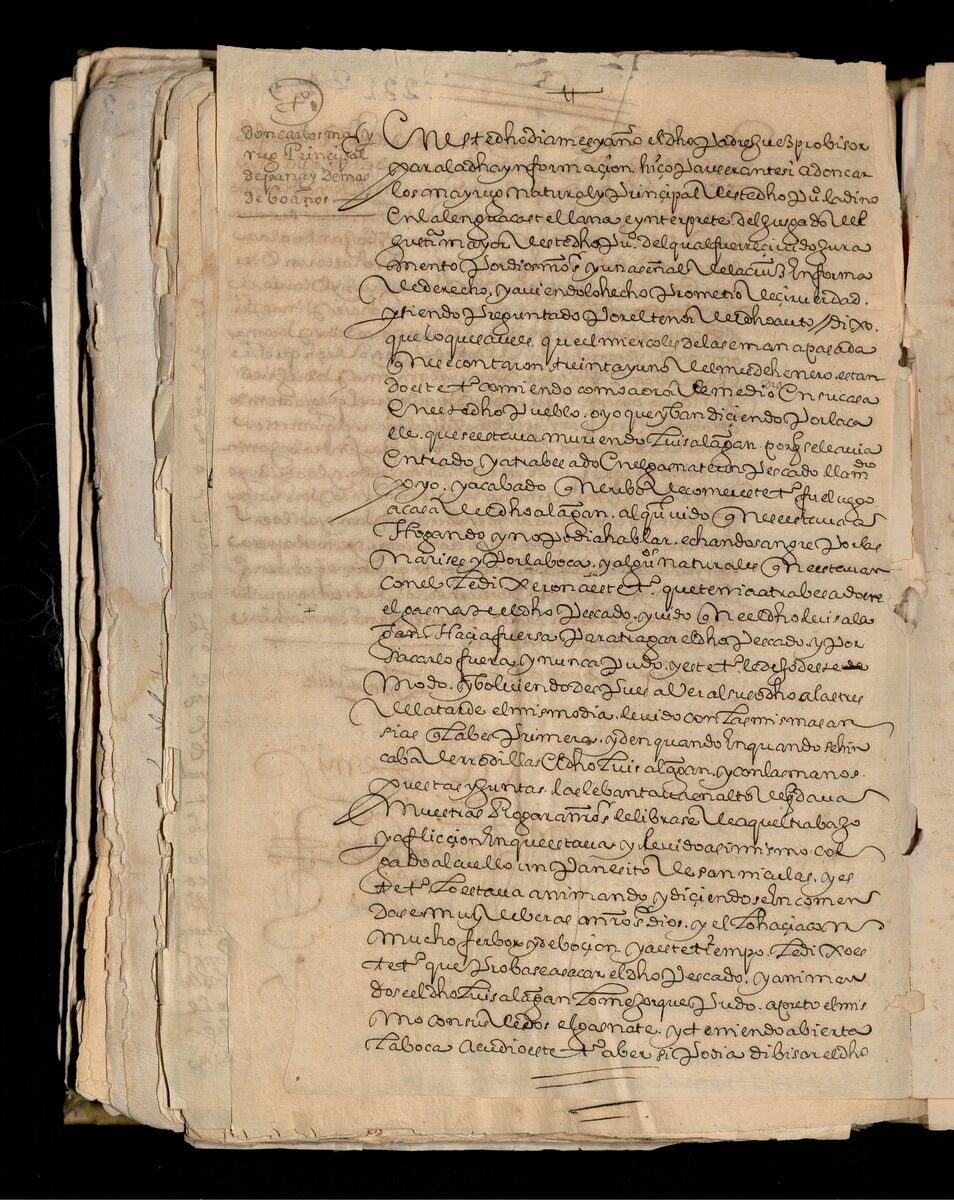 tº
Don carlos ma
yug Principal
de panay de mas
de 60 años
En este dho dia mes y año el dho Pº drigues probisor
para la dha ynformaçion. hiço Pareçer ante si a don car
los mayug natural y Principal deeste dho puº ladino
en la lengua castellana e ynterprete del Juzgado del
Justª mayor deeste dho puº. del qual fue rreçiuido Jura
mento Por dios nrõ sr y una señal de la cruz En forma
de derecho, y aviendolo hecho prometio deçir verdad.
y siendo preguntado Por el tenor del dho auto // dixo.
que lo que save es, que el miercoles de la semana pasada
que se contaron. treinta y uno del mes de henero. estan
do este tº comiendo como a ora de medio dia En su casa
En este dho Pueblo. oyo que yban diçiendo Por la ca
lle. que se estava muriendo Luis alagan. porq se le avia
Entrado y atrabesado En el gasnate un Pescado llamdo
poyo. y acabado que ubo de comer este tº. fue luego
a casa del dho alagan. al qual vido que se estava a
Hogando y no Podia hablar. echando sangre Por las
narises y Por la boca. y algus naturales que estavan
con el Le dixeron a este tº. que tenia atrabesado en
el gasnate el dho Pescado. y vido que el dho luis ala
gan. Haçia fuersa Para tragar el dho Pescado y Por
sacarlo fuera y nunca Pudo. y este tº. le dejo de ese
modo. y bolviendo despues a Ver al susodho a las tres
de la tarde el mismo dia. le vido con Las mismas an
sias q La bes Primera. y de en quando En quando se hin
caba de rrodillas El dho Luis alagan. y con las manos.
puestas y Juntas. las lebantava en alto q dava
muestras Rogar a nrõ sr le librase de aquel trabajo
y afliccion En que estava y le vido asimismo col
gado al cuello un Panesito de san niculas. y es
te tº. Lo estava animando y diçiendo se En comen
dase muy de beras a nrõ sr dios. y el Lo haçia con
mucho ferbor y deboçion. y a este tiempo. Le dixo es
te tº que Probase a sacar el dho Pescado. y animan
dose el dho Luis alagan Lo mejor que Pudo. apreto el mis
mo con sus dedos el gasnate. y teniendo abierta
La boca acudio este tº a ber si Podia dibisar el dho